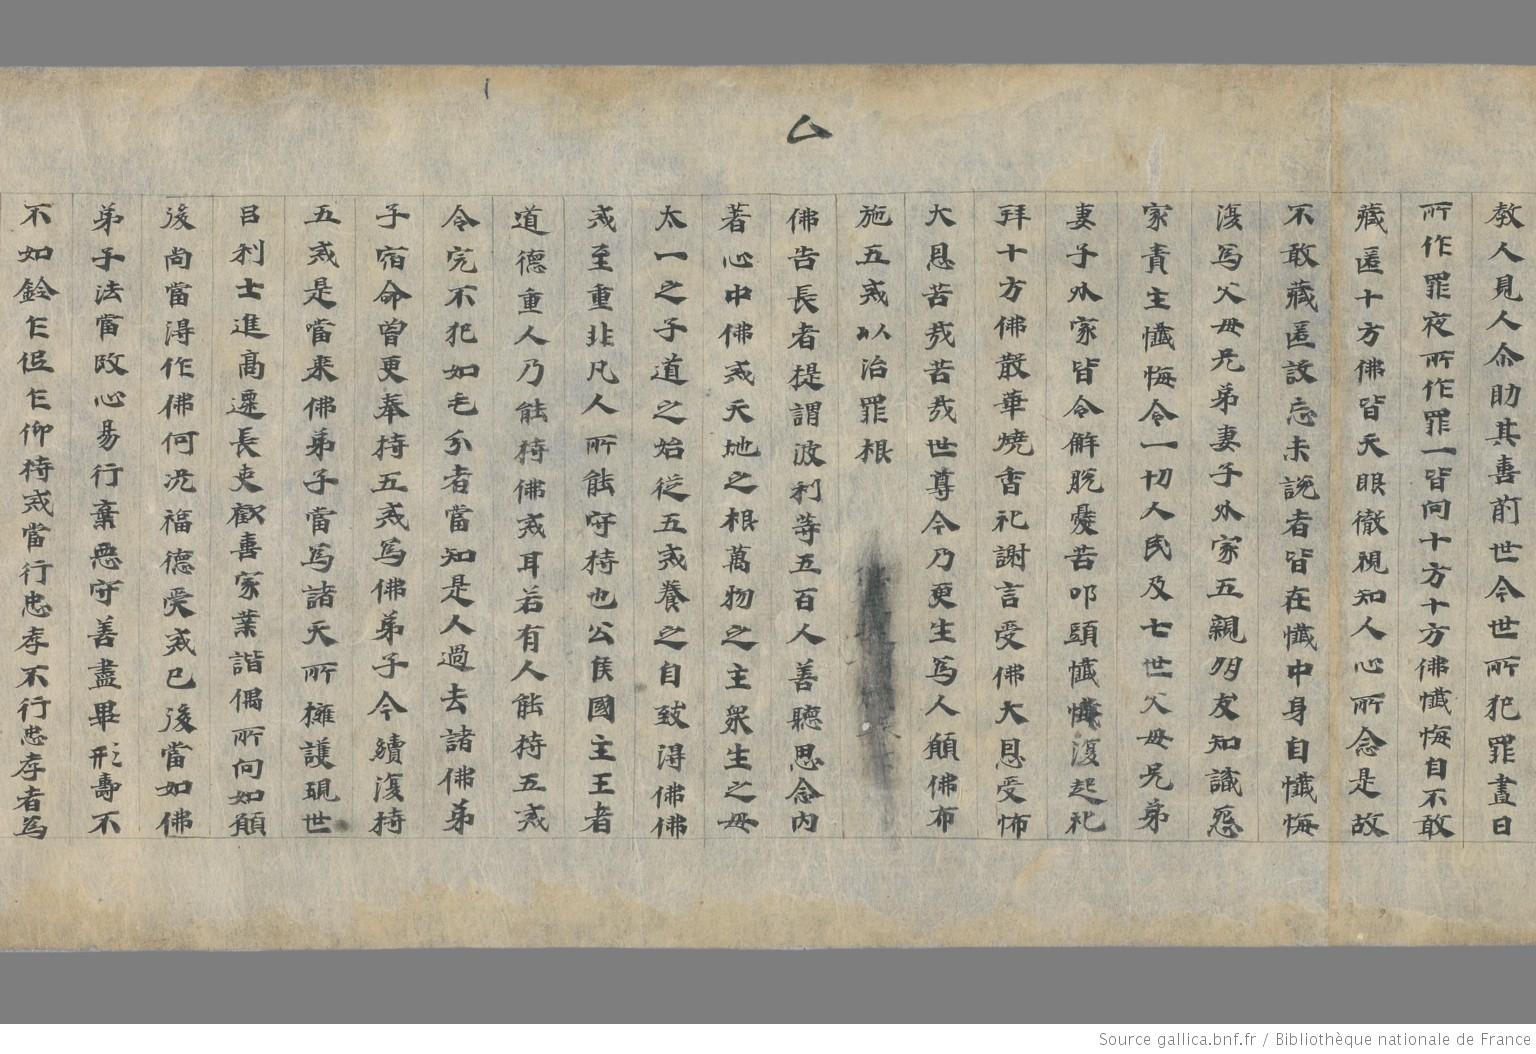 厶
教人見人命助其喜前世今世所犯罪晝日
所作罪夜所作罪一皆向十方十方佛懺悔自不敢
藏匿十方佛皆天眼徹視知人心所念是故
不敢藏匿設忘未説者皆在懺中身自懺悔
復為父母兄弟妻子外家五親朋友知識怨
家責主懺悔令一切人民及七世父母兄弟
妻子外家皆令解脱憂苦叩頭懺悔復起礼
拜十方佛散華燒香礼謝言受佛大恩受怖
大恩苦㢤苦㢤世尊今乃更生為人願佛布
施五戒以治罪根
佛告長者提謂波利等五百人善聽思念内
著心中佛戒天地之根萬物之主衆生之母
太一之子道之始從五戒養之自致得佛佛
戒至重非凡人所能守持也公侯國主王者
道德重人乃能持佛戒耳若有人能持五戒
令完不犯如毛分者當知是人過去諸佛弟
子宿命曽更奉持五戒為佛弟子今續復持
五戒是當来佛弟子當為諸天所擁護現世
吕利士進髙遷長吏歡喜家業諧偶所向如願
後尚當得作佛何况福德受戒已後當如佛
弟子法當改心易行棄惡守善盡畢形壽不
不如鈴乞但乞仰持戒當行忠孝不行忠孝者為
Source gallica.bnf.fr / Bibliothèque nationale de France